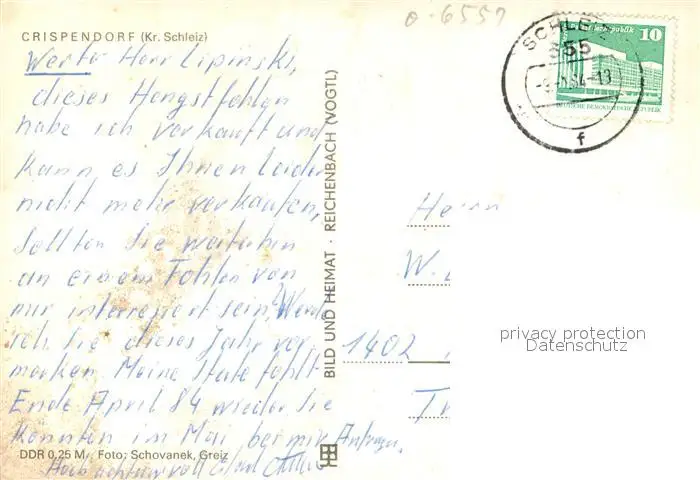 o-6557
CRISPENDORF (Kr. Schleiz)
SCHLEIZ
655
10
DEUTSCHE DEMOKRATISCHE REPUBLIK
f
Werter Herr Lipinski,
dieses Hengstfohlen
habe ich verkauft und
kann es Ihnen leider
nicht mehr verkaufen,
sollten Sie weiterhin
an einem Fohlen von
mir interresiert sein, Werde
ich Sie dieses Jahr vor
merken. Meine Stute fohlt
Ende April 84 wieder Sie
könnten im Mai bei mir Anfragen.
Hochachtungsvoll
BILD UND HEIMAT · REICHENBACH (VOGTL)
DDR 0,25 M Foto: Schovanek, Greiz
Herrn
W.
1402
privacy protection
Datenschutz